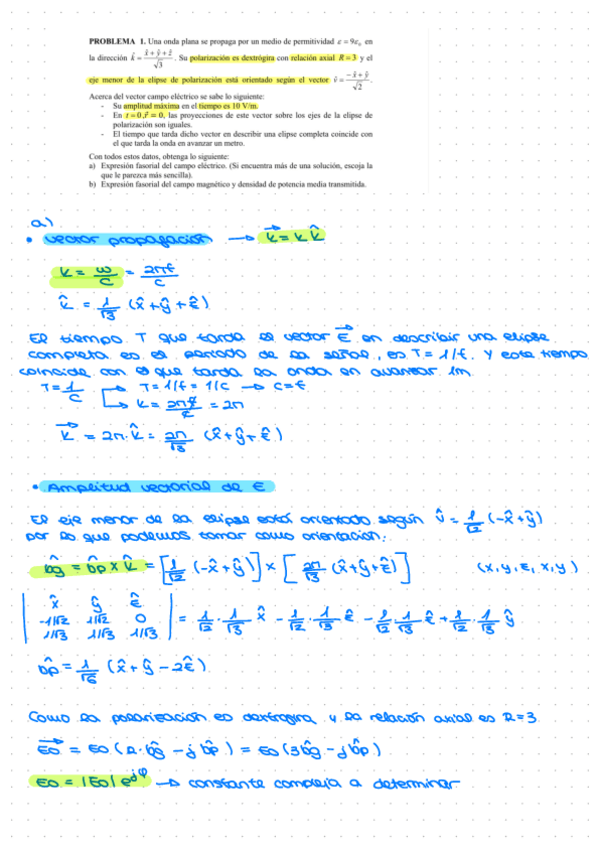 PROBLEMA 1. Una onda plana se propaga por un medio de permitividad ε = 9ε₀ en
la dirección k̂ = (x̂ + ŷ + ẑ)/√3. Su polarización es dextrógira con relación axial R = 3 y el
eje menor de la elipse de polarización está orientado según el vector v̂ = (-x̂ + ŷ)/√2.
Acerca del vector campo eléctrico se sabe lo siguiente:
- Su amplitud máxima en el tiempo es 10 V/m.
- En t = 0, r⃗ = 0, las proyecciones de este vector sobre los ejes de la elipse de
polarización son iguales.
- El tiempo que tarda dicho vector en describir una elipse completa coincide con
el que tarda la onda en avanzar un metro.
Con todos estos datos, obtenga lo siguiente:
a) Expresión fasorial del campo eléctrico. (Si encuentra más de una solución, escoja la
que le parezca más sencilla).
b) Expresión fasorial del campo magnético y densidad de potencia media transmitida.
a)
• vector propagación → k⃗ = k k̂
k = ω/c = 2πf/c
k̂ = 1/√3 (x̂ + ŷ + ẑ)
El tiempo T que tarda el vector E⃗ en describir una elipse
completa es el periodo de la señal, es T = 1/f. Y este tiempo
coincide con el que tarda la onda en avanzar 1m.
T = 1/c → T = 1/f = 1/c → c = f
→ k = 2πf/c = 2π
k⃗ = 2π · k̂ = 2π/√3 (x̂ + ŷ + ẑ)
• Amplitud vectorial de E
El eje menor de la elipse está orientado según v̂ = 1/√2 (-x̂ + ŷ)
por lo que podemos tomar como orientación:
b̂g = b̂p x k̂ = [1/√2 (-x̂ + ŷ)] x [2π/√3 (x̂ + ŷ + ẑ)] (x, y, z, x, y)
| x̂ ŷ ẑ |
| -1/√2 1/√2 0 | = 1/√2 · 1/√3 x̂ - 1/√2 · 1/√3 ẑ - 1/√2 · 1/√3 ẑ + 1/√2 · 1/√3 ŷ
| 1/√3 1/√3 1/√3 |
b̂p = 1/√6 (x̂ + ŷ - 2ẑ)
Como la polarización es dextrógira y la relación axial es R = 3
E⃗o = Eo (R · b̂g - j b̂p) = Eo (3b̂g - j b̂p)
Eo = |Eo| e^jφ → constante compleja a determinar